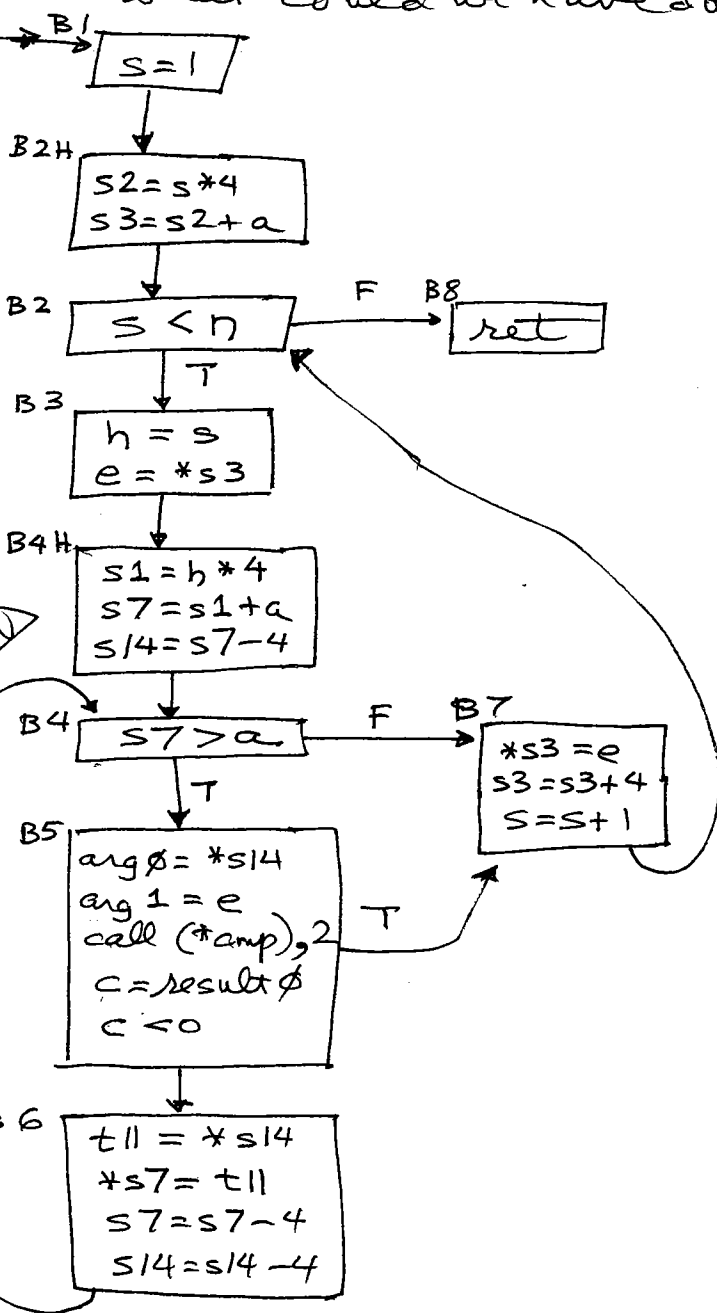 B1
s=1
B2H
s2=s*4
s3=s2+a
B2
s<n
F
B8
ret
T
B3
h=s
e=*s3
B4H
s1=h*4
s7=s1+a
s14=s7-4
B4
s7>a
F
B7
*s3=e
s3=s3+4
s=s+1
T
B5
argø=*s14
arg1=e
call (*cmp),2
c=resultø
c<0
T
6
t11=*s14
*s7=t11
s7=s7-4
s14=s14-4